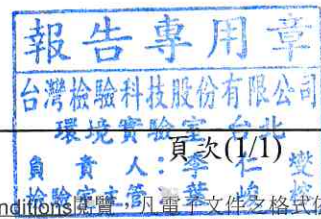 報告專用章
台灣檢驗科技股份有限公司
環境實驗室 台北
頁次(1/1)
負責人：李仁燮
檢驗室主管 葉
nditions閱覽，凡電子文件之格式依